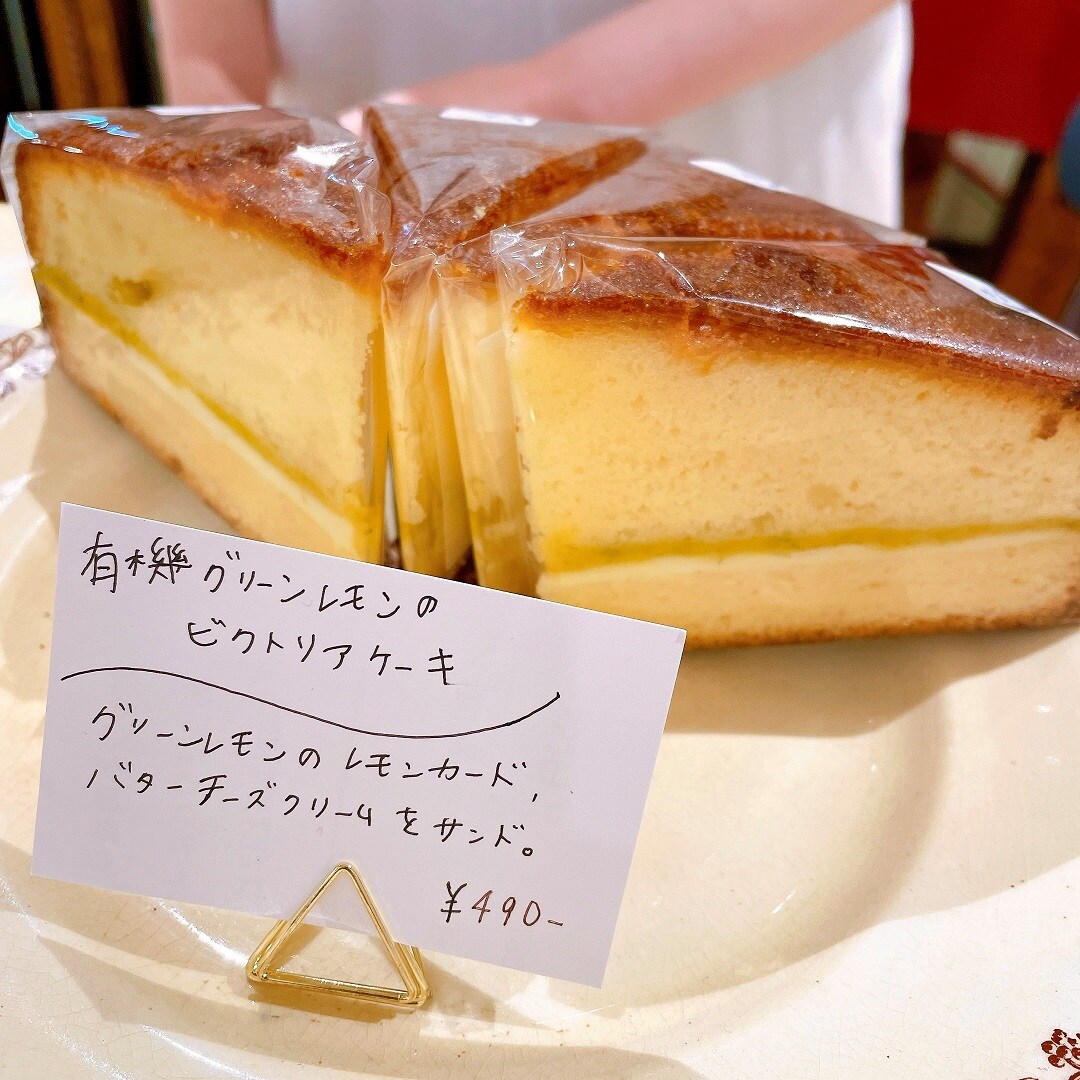 有機グリーンレモンの
ビクトリアケーキ
グリーンレモンのレモンカード、
バターチーズクリームをサンド。
¥490-